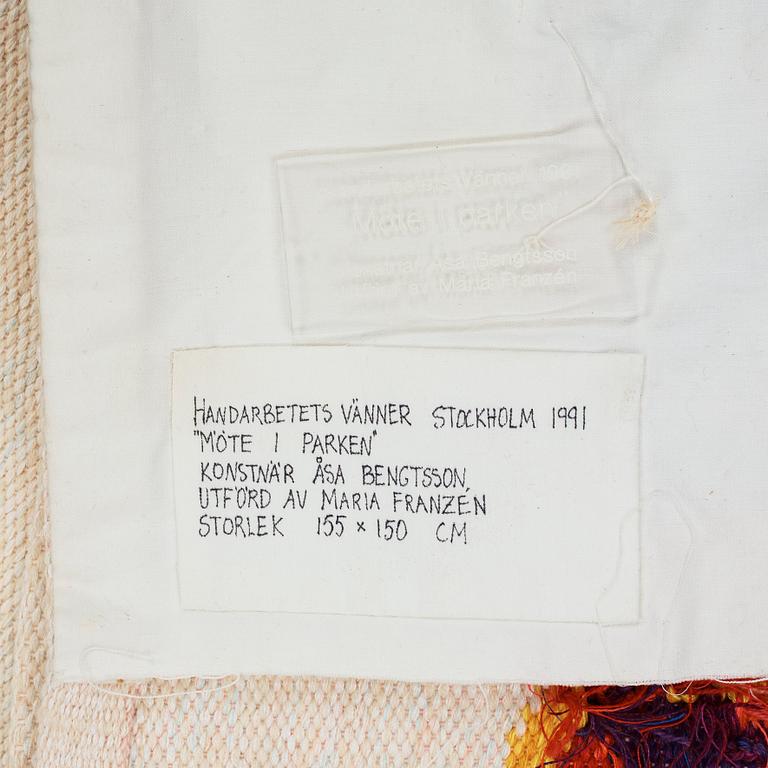 Vänner
Möte i parken
Åsa Bengtsson
av Maria Franzén
HANDARBETETS VÄNNER STOCKHOLM 1991
"MÖTE I PARKEN"
KONSTNÄR ÅSA BENGTSSON,
UTFÖRD AV MARIA FRANZÉN
STORLEK 155 × 150 CM